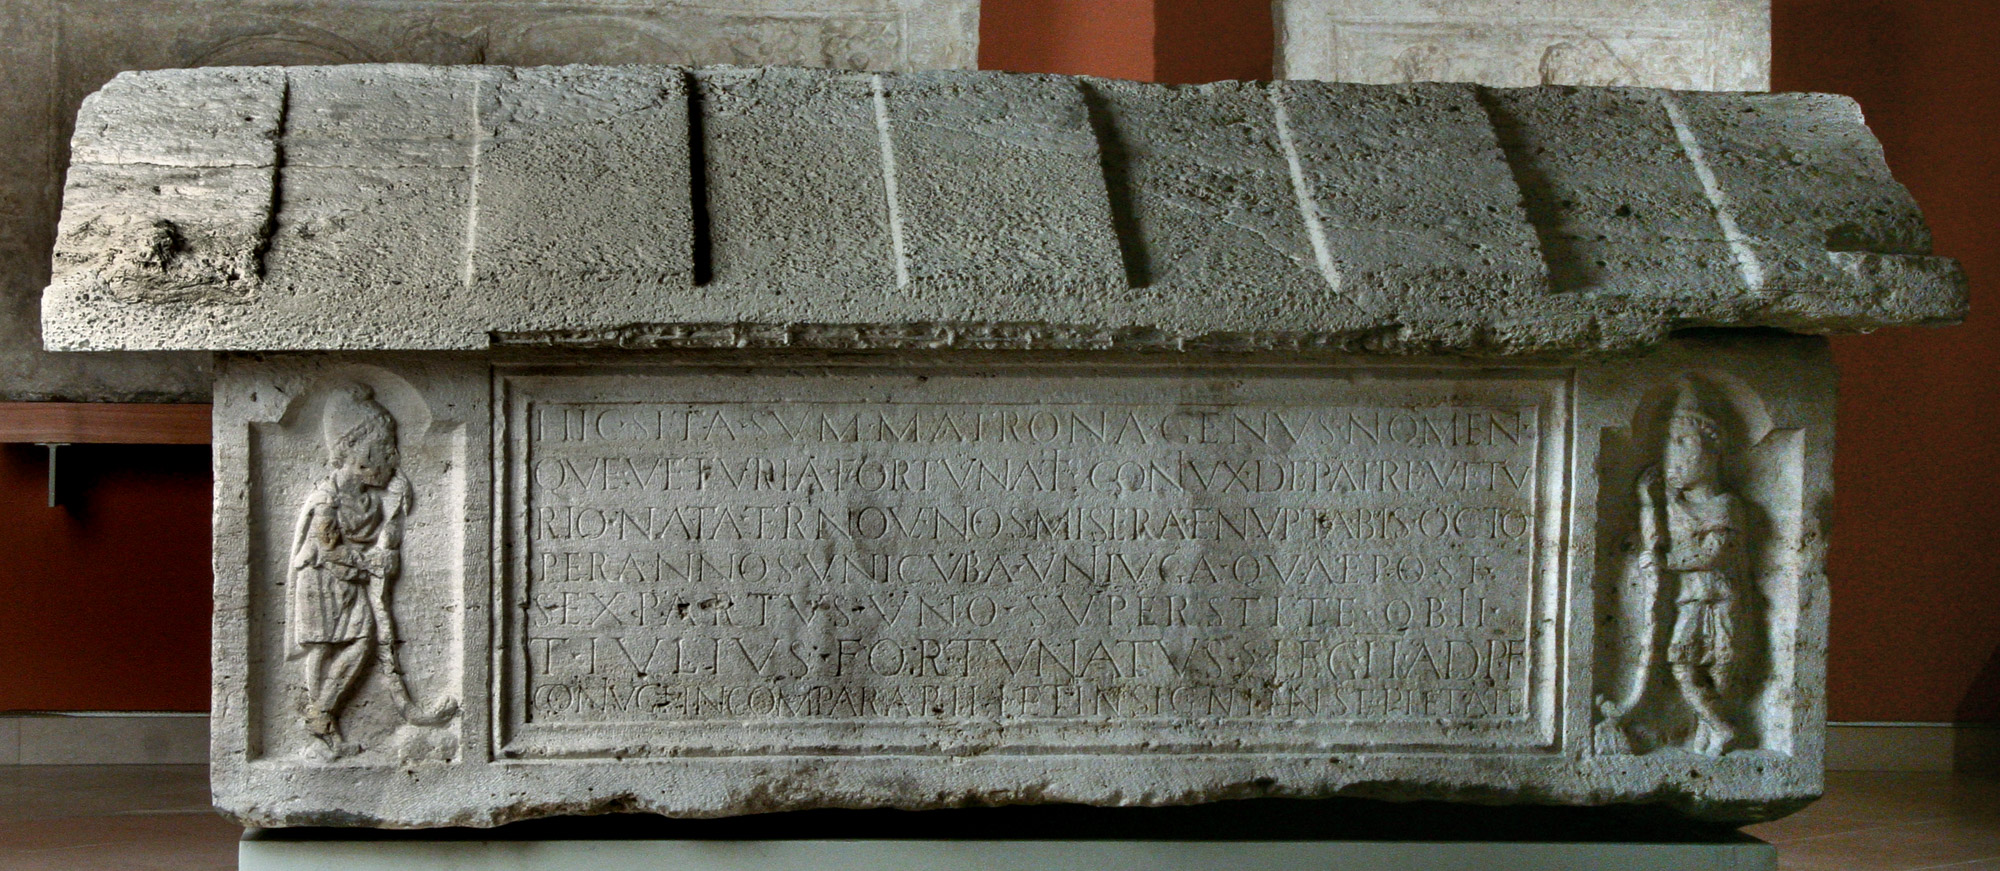 HIC·SITA·SVM·MATRONA·GENVS·NOMEN·
QVE·VETVRIA·FORTVNATI·CONIVX·DE·PATRE·VETV
RIO·NATA·TER·NOVENOS·MISERA·ET·NVPTA·BIS·OCTO
PER·ANNOS·VNICVBA·VNIIVGA·QVAE·POST·
SEX·PARTVS·VNO·SVPERSTITE·OBII·
T·IVLIVS·FORTVNATVS· LEG·II·AD·P·F
CONIVGI·INCOMPARABILI·ET·INSIGNI·IN·SE·PIETATE